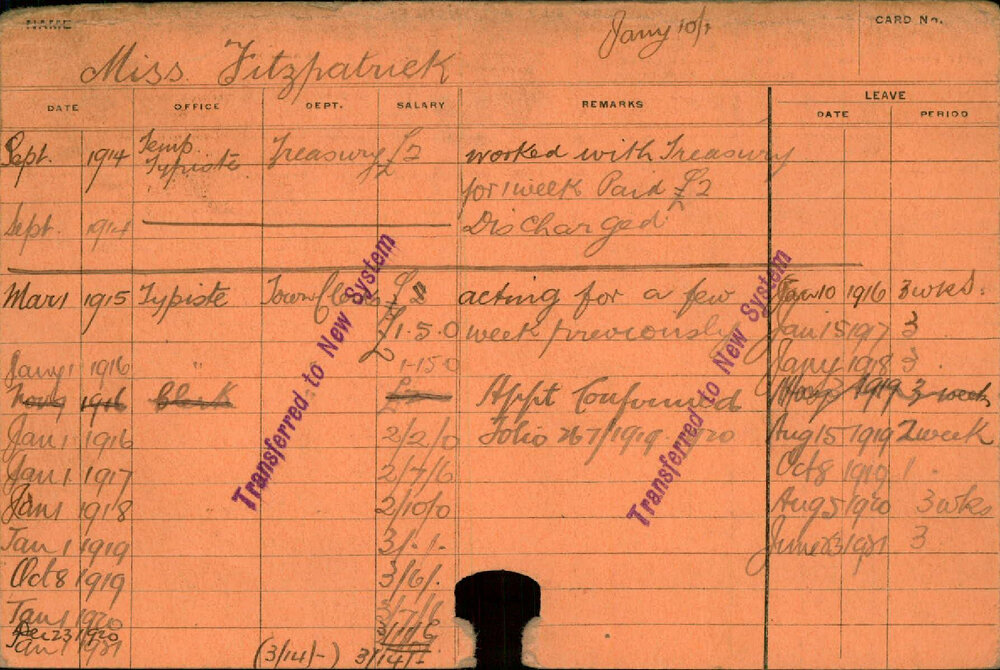 NAME
Jany 10/1
CARD No.
Miss. Fitzpatrick
DATE OFFICE DEPT. SALARY REMARKS LEAVE
DATE PERIOD
Sept. 1914 Temp. Typiste Treasury £2 worked with Treasury
for 1 week Paid £2
Sept. 1914 Discharged
Mar 1 1915 Typiste Town Clerk £2 acting for a few Jan 10 1916 3 wks.
£1.5.0 week previously Jan 15 1917 3
Jany 1 1916 " 1-15 0 Jany 1918 3
1916 Clerk Appt Confirmed 1919 3 week
Jan 1 1916 2/2/0 Folio 267/1919-1920 Aug 15 1919 2 week
Jan 1 1917 2/4/6 Oct 8 1919 1
Jan 1 1918 2/10/0 Aug 5 1920 3 wks
Jan 1 1919 3/-.1. June 23 1921 3
Oct 8 1919 3/6/.
Jan 1 1920 3/7/6
Dec 23 1920
Jan 1 1921 (3/14/-) 3/14/-
Transferred to New System
Transferred to New System